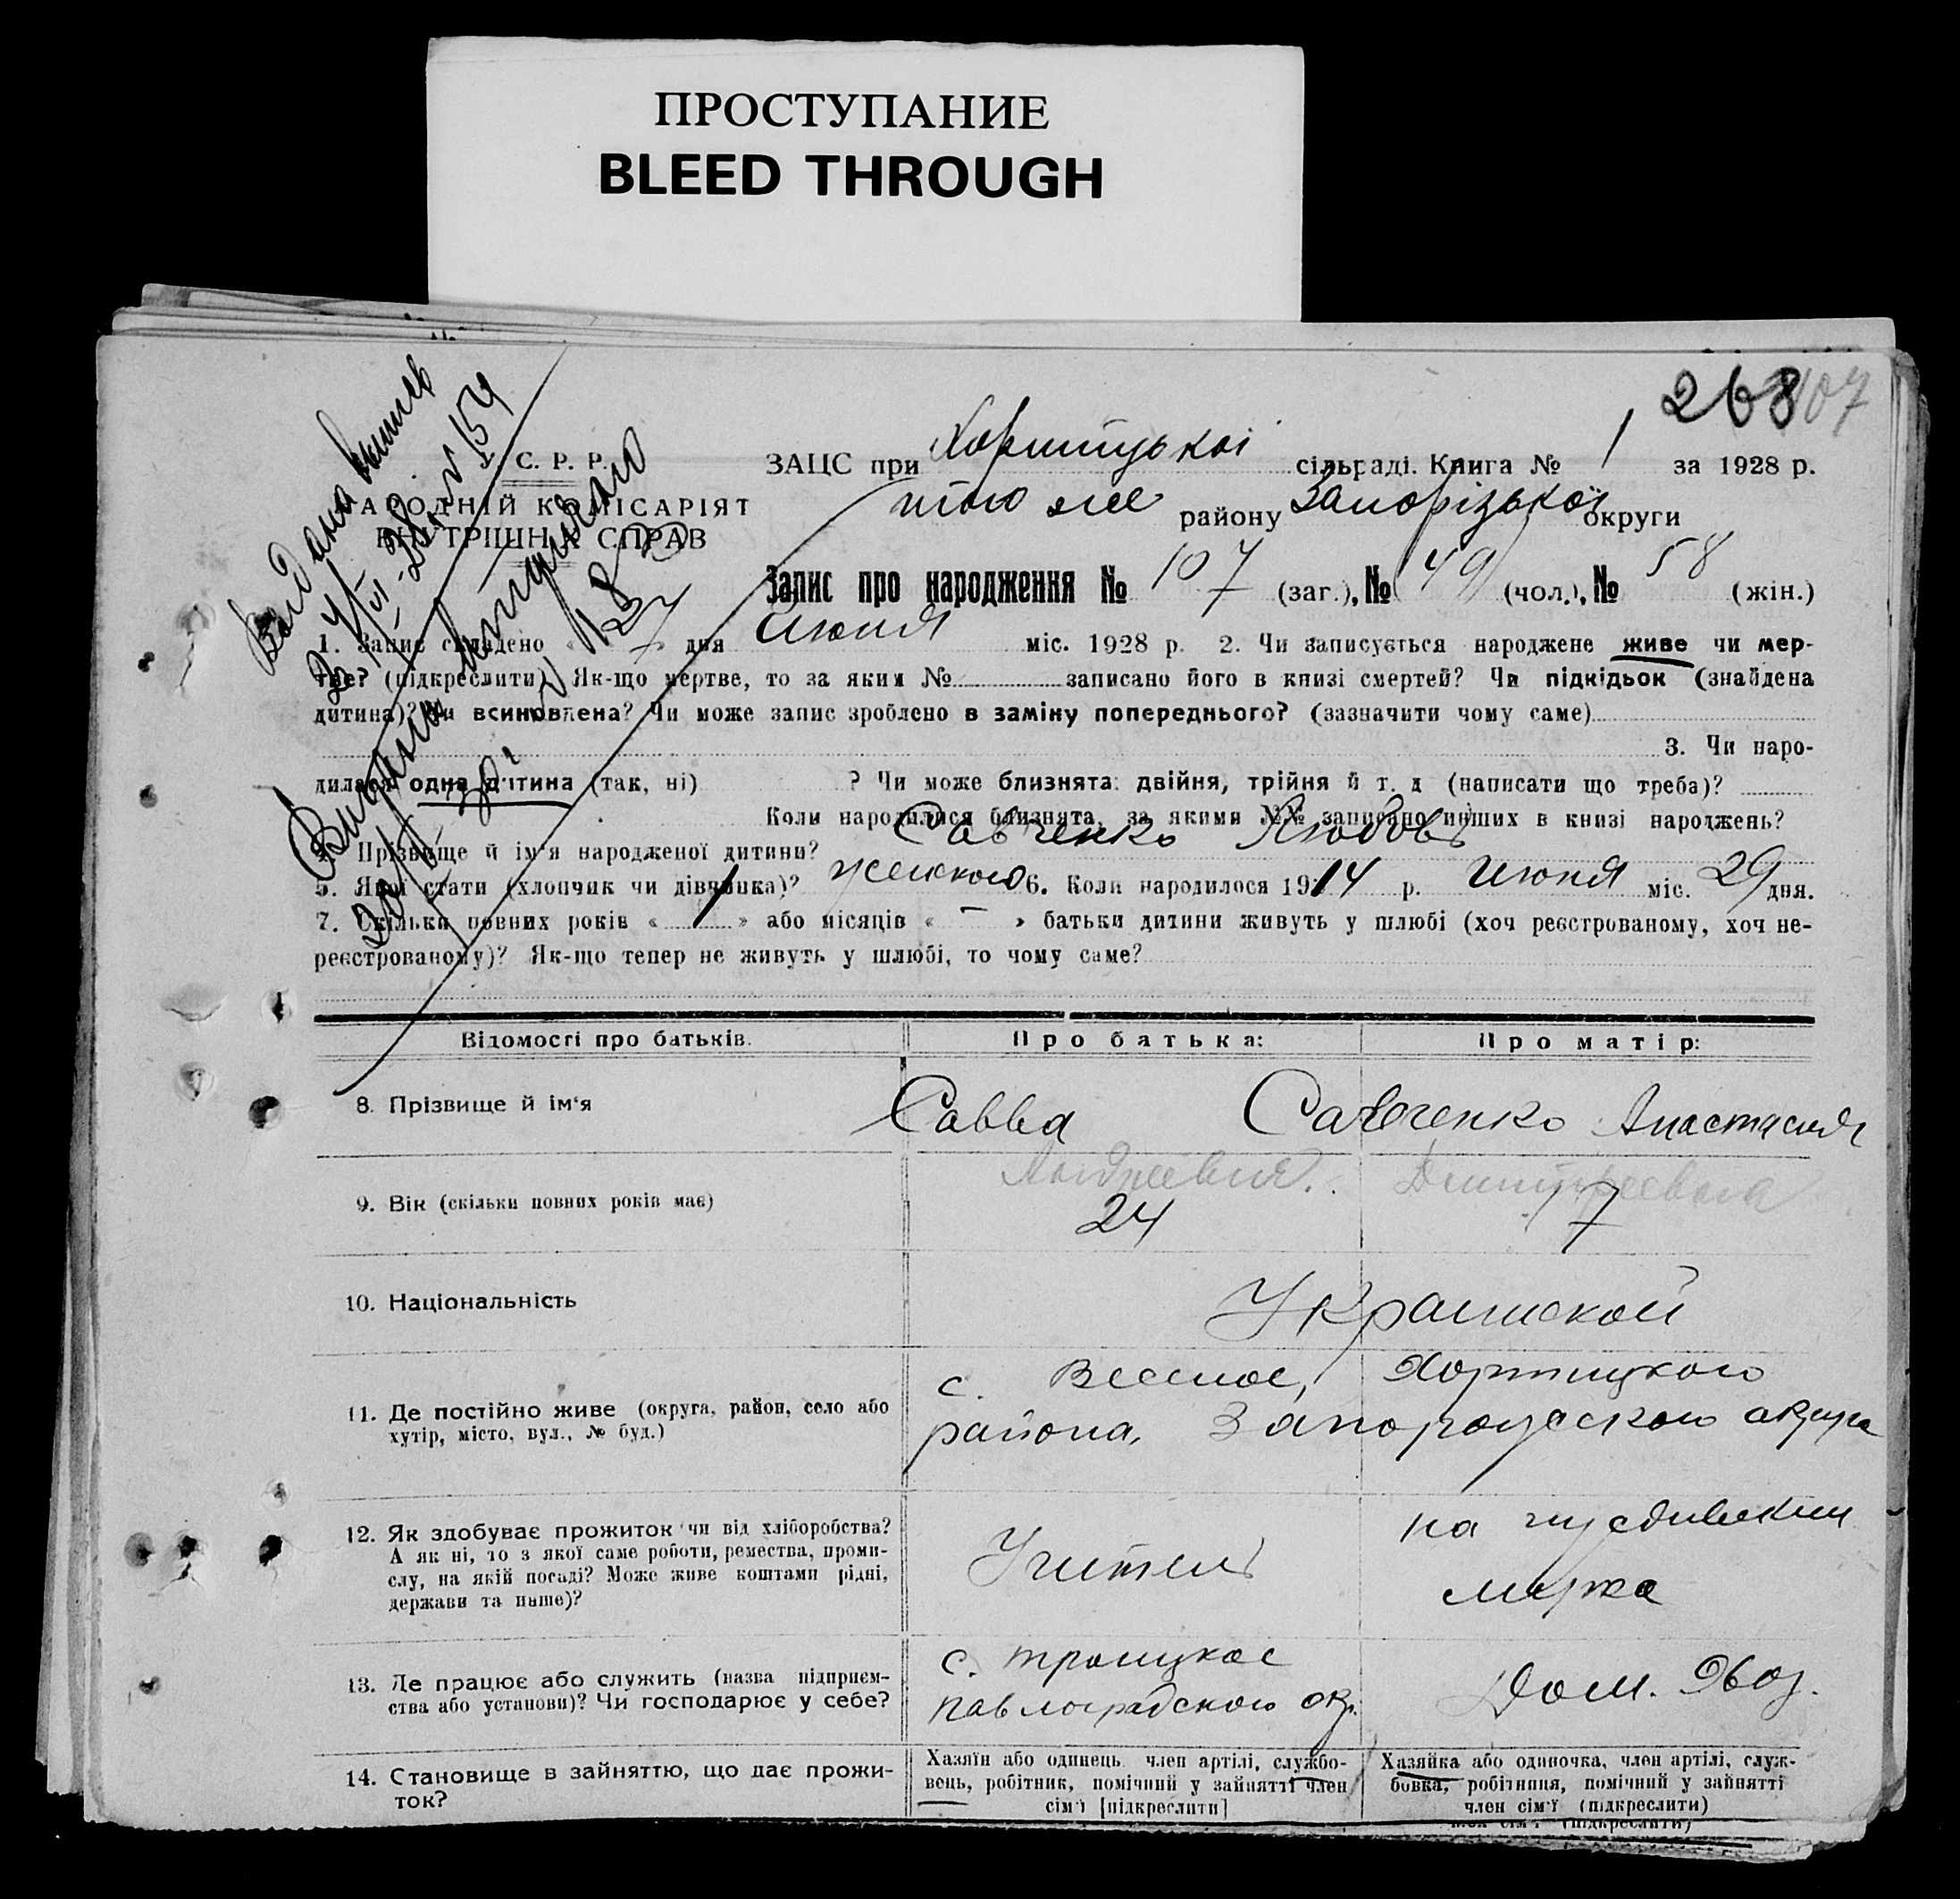 ПРОСТУПАНИЕ
BLEED THROUGH
268 107
У. С. Р. Р.
НАРОДНІЙ КОМІСАРІЯТ
ВНУТРІШНІХ СПРАВ
ЗАЦС при Хортицької сільраді. Книга № 1 за 1928 р.
того же району Запорізької округи
Запис про народження № 107 (заг.), № 49 (чол.), № 58 (жін.)
1. Запис складено « 27 » дня Июня міс. 1928 р. 2. Чи записується народжене живе чи мер-
тве? (підкреслити) Як-що мертве, то за яким № записано його в книзі смертей? Чи підкідьок (знайдена
дитина)? Чи всиновлена? Чи може запис зроблено в заміну попереднього? (зазначити чому саме)
3. Чи наро-
дилася одна дитина (так, ні) ? Чи може близнята: двійня, трійня й т. д (написати що треба)?
Коли народилися близнята, за якими №№ записано инших в книзі народжень?
4. Прізвище й ім'я народженої дитини? Савченко Любовь
5. Якої стати (хлопчик чи дівчинка)? женского 6. Коли народилося 1914 р. Июня міс. 29 дня.
7. Скільки повних років « 1 » або місяців « — » батьки дитини живуть у шлюбі (хоч реєстрованому, хоч не-
реєстрованому)? Як-що тепер не живуть у шлюбі, то чому саме?
Відомості про батьків. Про батька: Про матір:
8. Прізвище й ім'я Савва Савченко Анастасия
Андреевич. Дмитреевна
9. Вік (скільки повних років має) 24 17
10. Національність Украинской
11. Де постійно живе (округа, район, село або
хутір, місто, вул., № буд.)
с. Веселое, Хортицкого
района, Запорожского округа
12. Як здобуває прожиток чи від хліборобства?
А як ні, то з якої саме роботи, ремества, проми-
слу, на якій посаді? Може живе коштами рідні,
держави та инше)?
Учитель
на иждивении
мужа
13. Де працює або служить (назва підприєм-
ства або установи)? Чи господарює у себе?
с. Троицкое
Павлоградского окр.
Дом. Хоз.
14. Становище в зайняттю, що дає прожи-
ток?
Хазяїн або одинець член артілі, службо-
вець, робітник, помічний у зайнятті член
сім'ї [підкреслити]
Хазяйка або одиночка, член артілі, служ-
бовка, робітниця, помічний у зайнятті
член сім'ї (підкреслити)